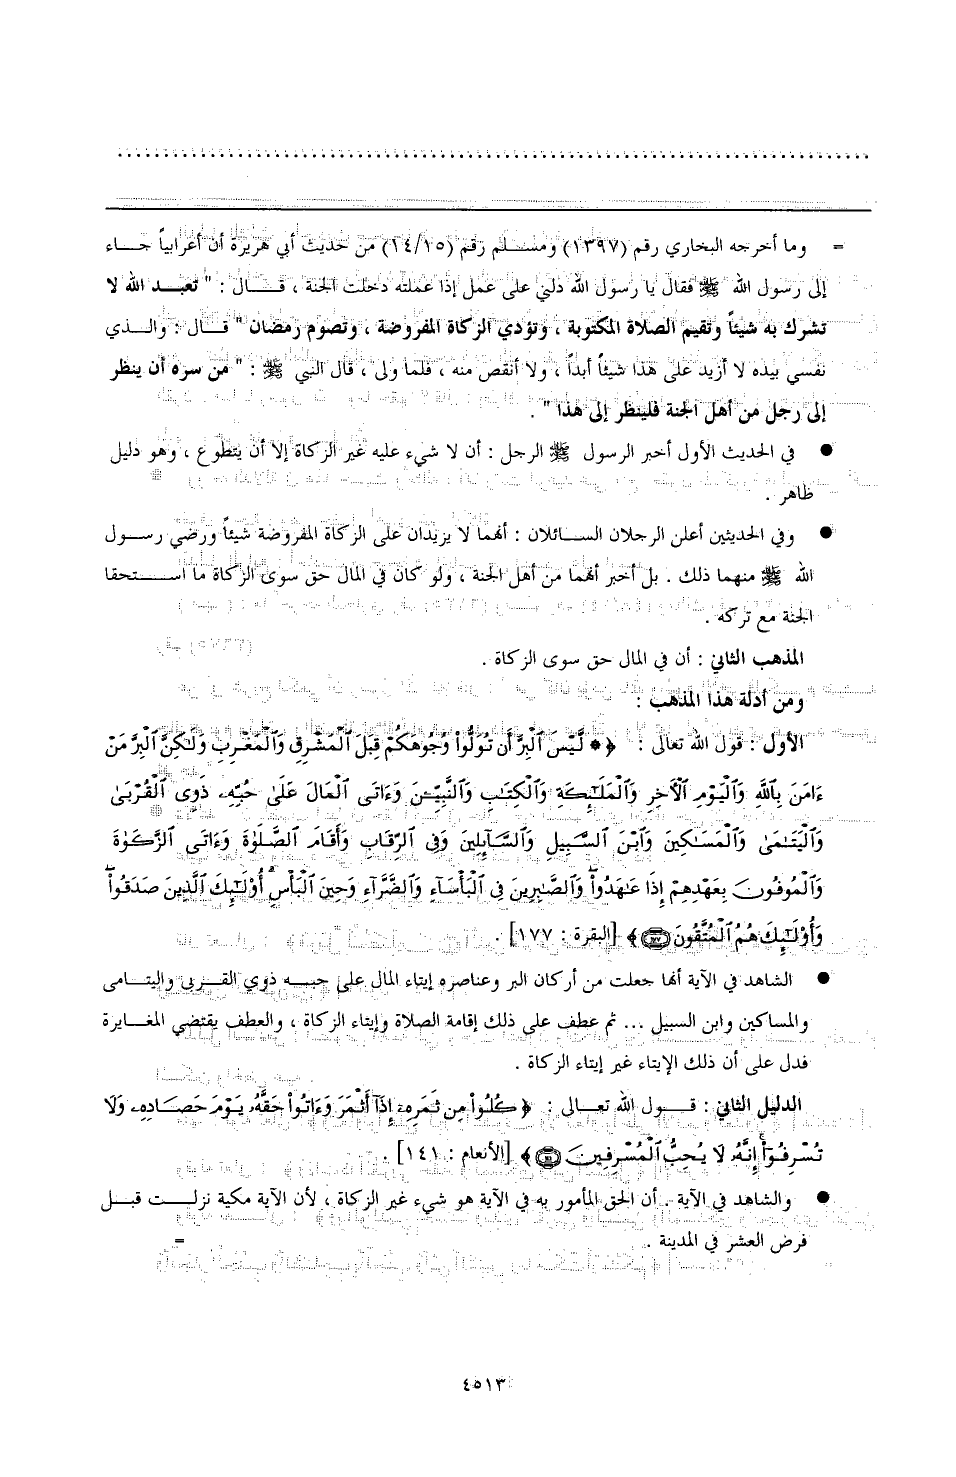 = وما أخرجه البخاري رقم (١٣٩٧) ومسلم رقم (١٤/١٥) من حديث أبي هريرة أن أعرابياً جاء
إلى رسول الله ﷺ فقال يا رسول الله دلني على عمل إذا عملته دخلت الجنة ، قال : " تعبد الله لا
تشرك به شيئاً وتقيم الصلاة المكتوبة ، وتؤدي الزكاة المفروضة ، وتصوم رمضان " قال : والذي
نفسي بيده لا أزيد على هذا شيئاً أبداً ، ولا أنقص منه ، فلما ولى ، قال النبي ﷺ : " من سره أن ينظر
إلى رجل من أهل الجنة فلينظر إلى هذا " .
● في الحديث الأول أخبر الرسول ﷺ الرجل : أن لا شيء عليه غير الزكاة إلا أن يتطوع ، وهو دليل
ظاهر .
● وفي الحديثين أعلن الرجلان السائلان : أنهما لا يزيدان على الزكاة المفروضة شيئاً ورضي رسول
الله ﷺ منهما ذلك . بل أخبر أنهما من أهل الجنة ، ولو كان في المال حق سوى الزكاة ما استحقا
الجنة مع تركه .
المذهب الثاني : أن في المال حق سوى الزكاة .
ومن أدلة هذا المذهب :
الأول : قول الله تعالى : ﴿ * لَّيْسَ ٱلْبِرَّ أَن تُوَلُّوا۟ وُجُوهَكُمْ قِبَلَ ٱلْمَشْرِقِ وَٱلْمَغْرِبِ وَلَـٰكِنَّ ٱلْبِرَّ مَنْ
ءَامَنَ بِٱللَّهِ وَٱلْيَوْمِ ٱلْـَٔاخِرِ وَٱلْمَلَـٰٓئِكَةِ وَٱلْكِتَـٰبِ وَٱلنَّبِيِّـۧنَ وَءَاتَى ٱلْمَالَ عَلَىٰ حُبِّهِۦ ذَوِى ٱلْقُرْبَىٰ
وَٱلْيَتَـٰمَىٰ وَٱلْمَسَـٰكِينَ وَٱبْنَ ٱلسَّبِيلِ وَٱلسَّآئِلِينَ وَفِى ٱلرِّقَابِ وَأَقَامَ ٱلصَّلَوٰةَ وَءَاتَى ٱلزَّكَوٰةَ
وَٱلْمُوفُونَ بِعَهْدِهِمْ إِذَا عَـٰهَدُوا۟ ۖ وَٱلصَّـٰبِرِينَ فِى ٱلْبَأْسَآءِ وَٱلضَّرَّآءِ وَحِينَ ٱلْبَأْسِ ۗ أُو۟لَـٰٓئِكَ ٱلَّذِينَ صَدَقُوا۟ ۖ
وَأُو۟لَـٰٓئِكَ هُمُ ٱلْمُتَّقُونَ ١٧٧ ﴾ [البقرة : ١٧٧] .
● الشاهد في الآية أنها جعلت من أركان البر وعناصره إيتاء المال على حبه ذوي القربى واليتامى
والمساكين وابن السبيل ... ثم عطف على ذلك إقامة الصلاة وإيتاء الزكاة ، والعطف يقتضي المغايرة
فدل على أن ذلك الإيتاء غير إيتاء الزكاة .
الدليل الثاني : قول الله تعالى : ﴿ كُلُوا۟ مِن ثَمَرِهِۦٓ إِذَآ أَثْمَرَ وَءَاتُوا۟ حَقَّهُۥ يَوْمَ حَصَادِهِۦ وَلَا
تُسْرِفُوٓا۟ ۚ إِنَّهُۥ لَا يُحِبُّ ٱلْمُسْرِفِينَ ١٤١ ﴾ [الأنعام : ١٤١] .
● والشاهد في الآية . أن الحق المأمور به في الآية هو شيء غير الزكاة ، لأن الآية مكية نزلت قبل
فرض العشر في المدينة . =
٤٥١٣